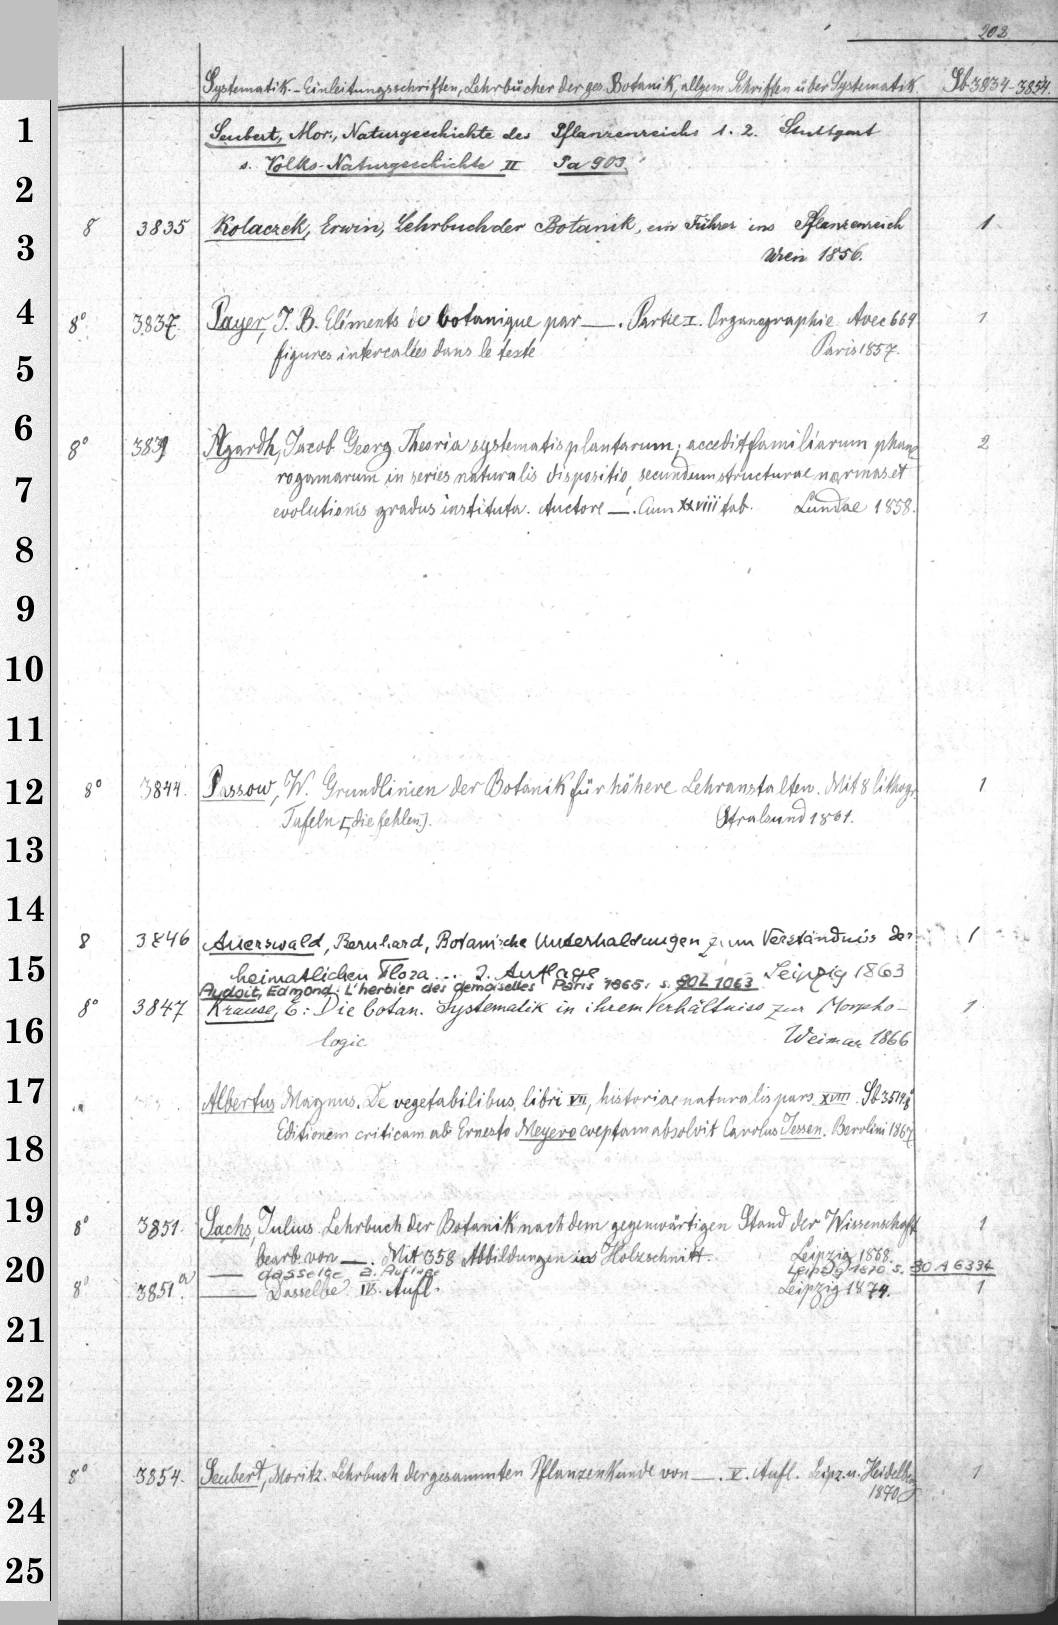 202
Systematik. - Einleitungsschriften, Lehrbücher der ges. Botanik, allgem. Schriften über Systematik. Sb 3834-3854.
1
Seubert, Mor., Naturgeschichte des Pflanzenreichs 1. 2. Stuttgart
s. Volks-Naturgeschichte II Sa 903
2
8 3835 Kolaczek, Erwin, Lehrbuch der Botanik, ein Führer ins Pflanzenreich 1
3
Wien 1856.
4
8° 3837. Payer, J. B. Eléments de botanique par —. Partie I. Organographie. Avec 664 1
figures intercalées dans le texte Paris 1857.
5
6
8° 3839 Agardh, Jacob Georg. Theoria systematis plantarum; accedit familiarum phane 2
rogamarum in series naturalis dispositio, secundum structurae normas et
7
evolutionis gradus instituta. Auctore —. Cum XXVIII tab. Lundae 1858.
8
9
10
11
12
8° 3844. Passow, W. Grundlinien der Botanik für höhere Lehranstalten. Mit 8 lithogr. 1
Tafeln [die fehlen]. Stralsund 1861.
13
14
8 3846 Auerswald, Bernhard, Botanische Unterhaltungen zum Verständnis der 1
15
heimatlichen Flora... 2. Auflage Leipzig 1863
Audoit, Edmond: L'herbier des demoiselles Paris 1865. s. 20L 1063
8° 3847 Krause, E: Die botan. Systematik in ihrem Verhältniss zur Morpho- 1
16
logie Weimar 1866
17
Albertus Magnus. De vegetabilibus, libri VII, historiae naturalis pars XVIII. Sb 3514
Editionem criticam ab Ernesto Meyero coeptam absolvit Carolus Jessen. Berolini 1867
18
19
8° 3851. Sachs, Julius. Lehrbuch der Botanik nach dem gegenwärtigen Stand der Wissenschaft 1
bearb. von —. Mit 358 Abbildungen in Holzschnitt. Leipzig 1868.
20
— dasselbe 2. Auflage Leipzig 1870 s. 30 A 6334
8° 3851.a — Dasselbe IV. Aufl. Leipzig 1874. 1
21
22
23
8° 3854. Seubert, Moritz. Lehrbuch der gesammten Pflanzenkunde von —. V. Aufl. Leipz. u. Heidelberg 1
1870
24
25